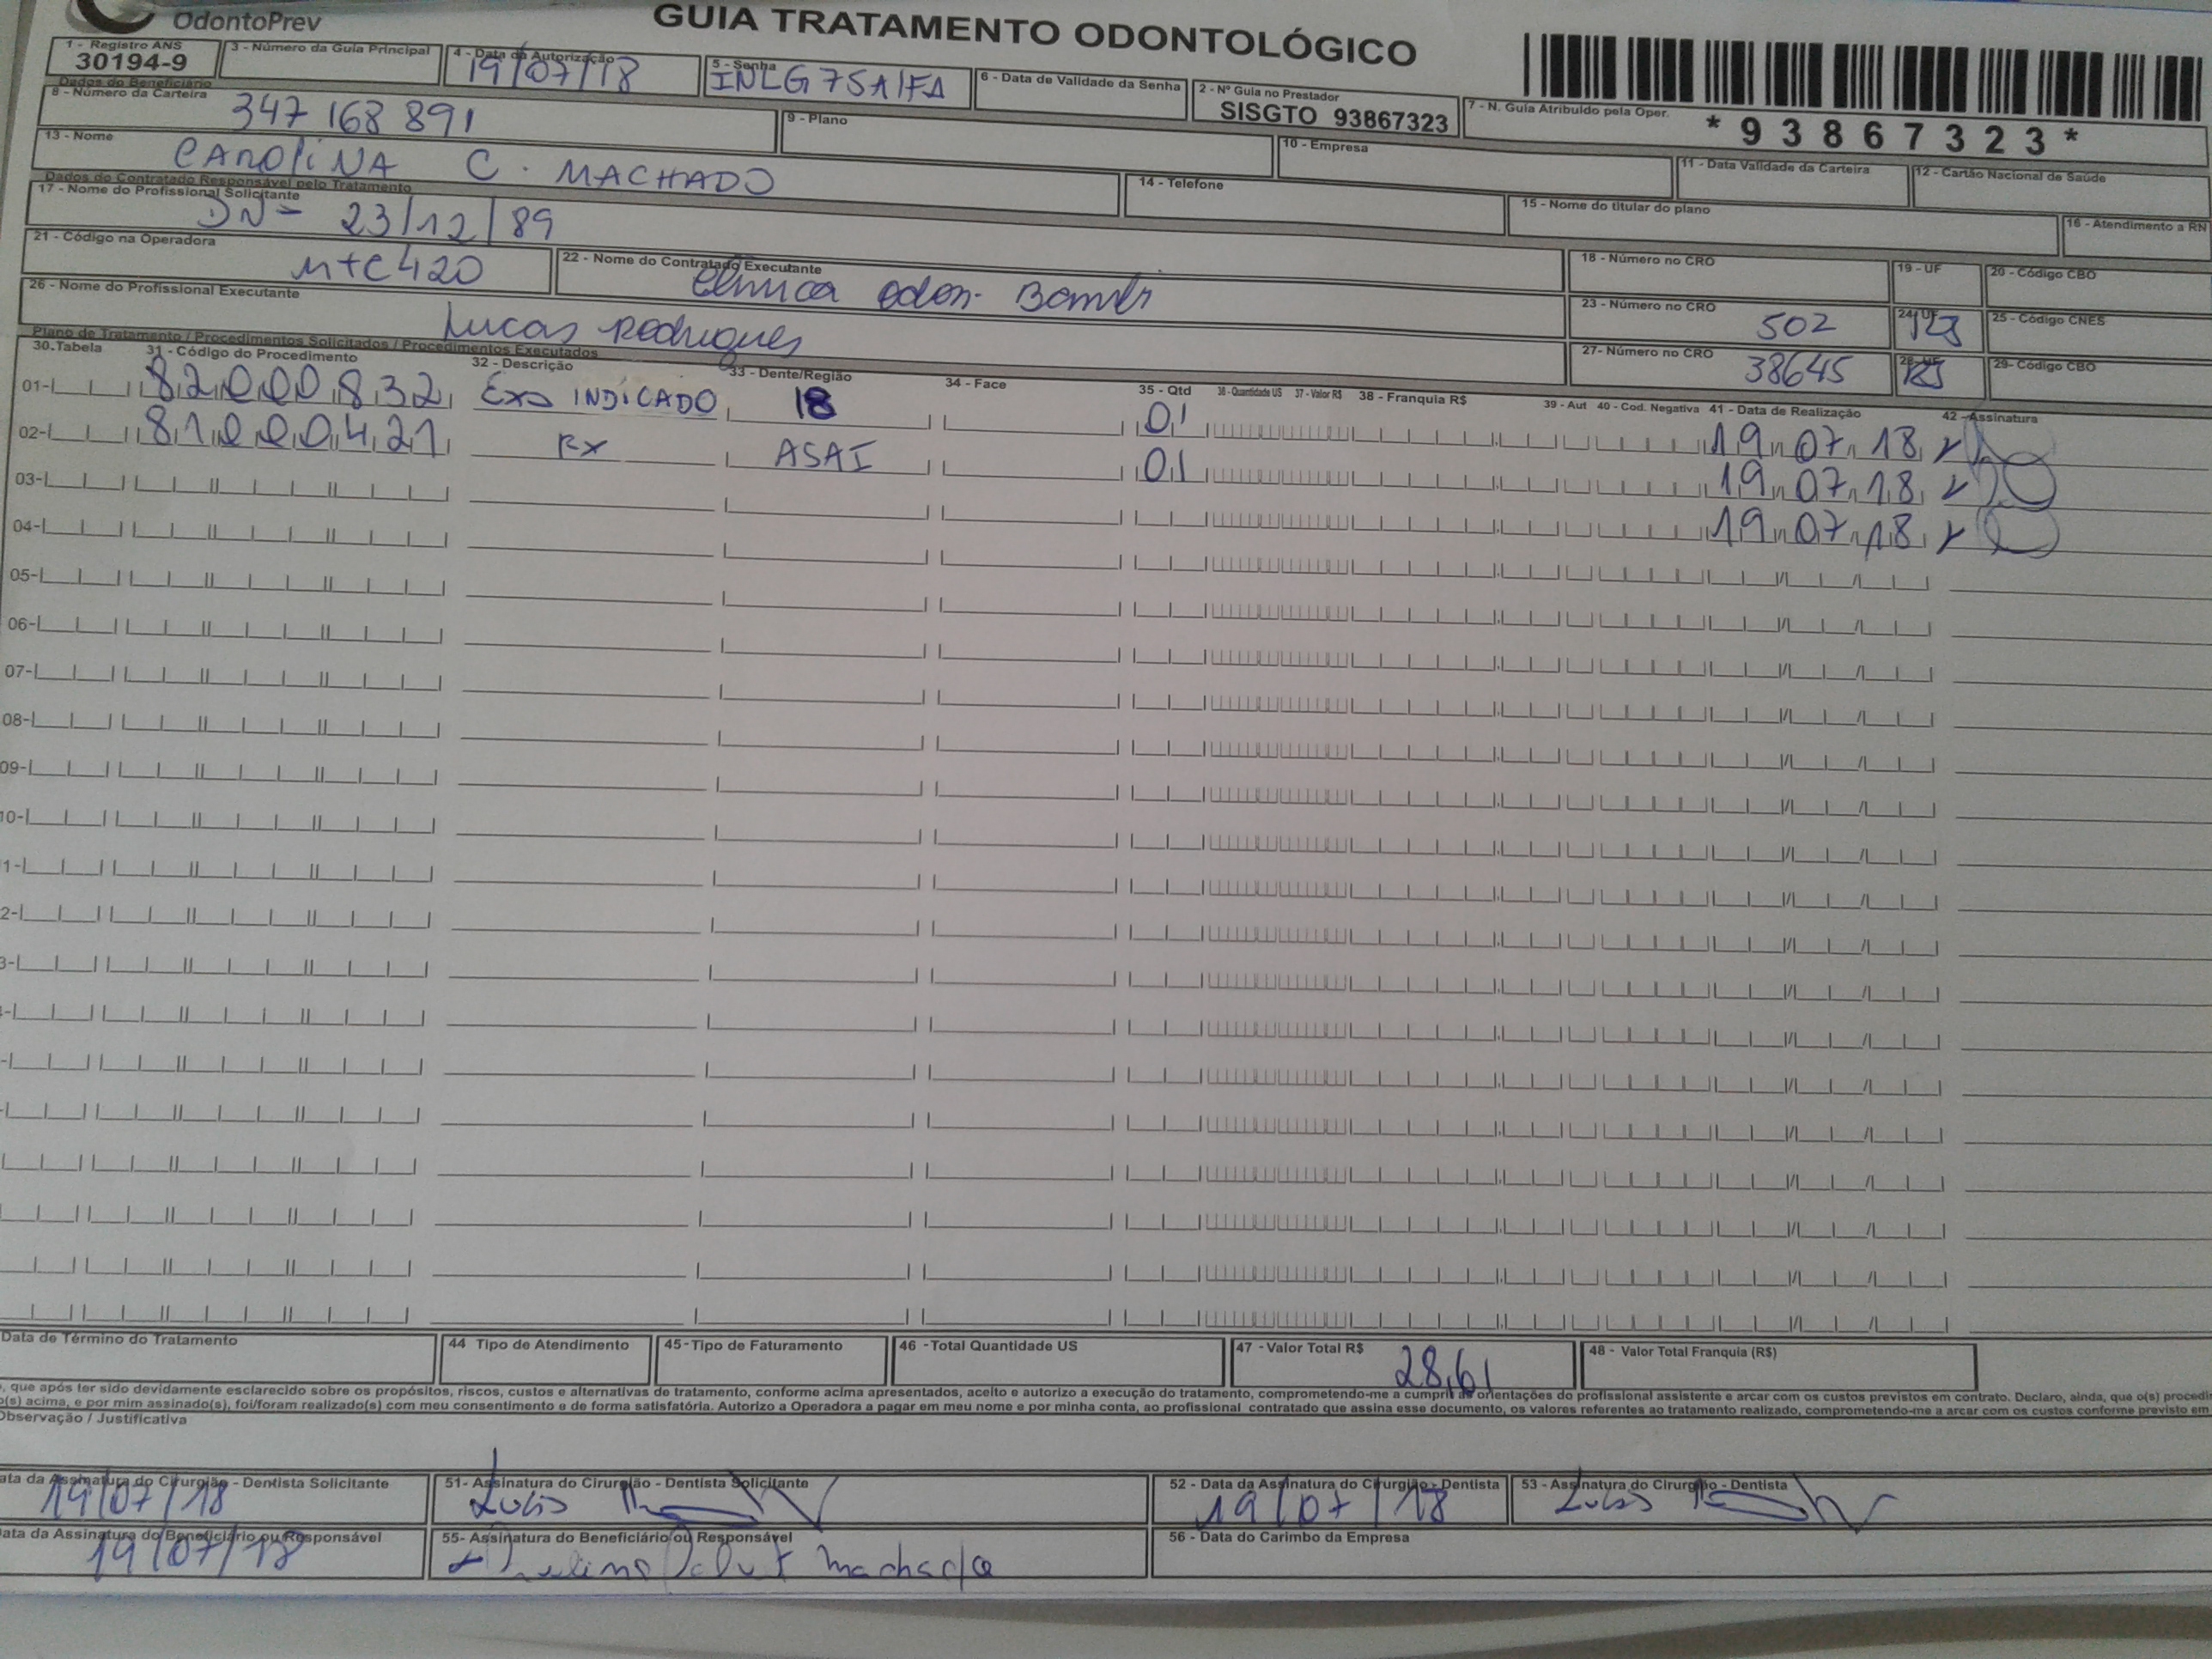 OdontoPrev
GUIA TRATAMENTO ODONTOLÓGICO
1 - Registro ANS
30194-9
3 - Número da Guia Principal
4 - Data da Autorização
19/07/18
5 - Senha
6 - Data de Validade da Senha
2 - Nº Guia no Prestador
SISGTO 93867323
7 - N. Guia Atribuído pela Oper.
*93867323*
Dados do Beneficiário
8 - Número da Carteira
347 168 891
9 - Plano
10 - Empresa
11 - Data Validade da Carteira
12 - Cartão Nacional de Saúde
13 - Nome
CAROLINA C. MACHADO
14 - Telefone
15 - Nome do titular do plano
16 - Atendimento a RN
Dados do Contratado Responsável pelo Tratamento
17 - Nome do Profissional Solicitante
DN - 23/12/89
18 - Número no CRO
19 - UF
20 - Código CBO
21 - Código na Operadora
22 - Nome do Contratado Executante
Clínica Odon.
23 - Número no CRO
502
24 - UF
25 - Código CNES
26 - Nome do Profissional Executante
Lucas Rodrigues
27- Número no CRO
38645
28 - UF
29- Código CBO
Plano de Tratamento / Procedimentos Solicitados / Procedimentos Executados
30.Tabela 31 - Código do Procedimento 32 - Descrição 33 - Dente/Região 34 - Face 35 - Qtd 36 - Quantidade US 37 - Valor R$ 38 - Franquia R$ 39 - Aut 40 - Cod. Negativa 41 - Data de Realização 42 - Assinatura
01- 82000832 Exo INDICADO 18 01 19 07 18
02- 81000421 RX ASAI 01 19 07 18
03- 19 07 18
04-
05-
06-
07-
08-
09-
10-
1-
2-
3-
Data de Término do Tratamento
44 Tipo de Atendimento
45-Tipo de Faturamento
46 -Total Quantidade US
47 - Valor Total R$
28,61
48 - Valor Total Franquia (R$)
, que após ter sido devidamente esclarecido sobre os propósitos, riscos, custos e alternativas de tratamento, conforme acima apresentados, aceito e autorizo a execução do tratamento, comprometendo-me a cumprir as orientações do profissional assistente e arcar com os custos previstos em contrato. Declaro, ainda, que o(s) procedi
o(s) acima, e por mim assinado(s), foi/foram realizado(s) com meu consentimento e de forma satisfatória. Autorizo a Operadora a pagar em meu nome e por minha conta, ao profissional contratado que assina esse documento, os valores referentes ao tratamento realizado, comprometendo-me a arcar com os custos conforme previsto em
Observação / Justificativa
ata da Assinatura do Cirurgião - Dentista Solicitante
19/07/18
51- Assinatura do Cirurgião - Dentista Solicitante
52 - Data da Assinatura do Cirurgião - Dentista
19/07/18
53 - Assinatura do Cirurgião - Dentista
ata da Assinatura do Beneficiário ou Responsável
19/07/18
55- Assinatura do Beneficiário ou Responsável
Machado
56 - Data do Carimbo da Empresa